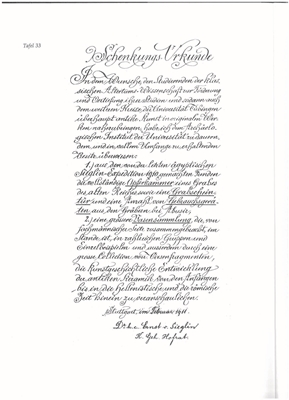 Tafel 33
Schenkungs Urkunde
In dem Wunsche, den Studierenden der klas-
sischen Altertums-Wissenschaft zur Förderung
und Vertiefung ihrer Studien und sodann auch
dem weiteren Kreise, die Universität Tübingen
überhaupt antike Kunst in originalen Wer-
ken nahezubringen, habe ich dem Archäolo-
gischen Institut der Universität zu dauern-
dem, und in seinem Umfange zu erhaltenden
Besitz überwiesen:
1.) aus den von der letzten ägyptischen
Sieglin-Expedition 1910 gemachten Funden
die vollständige Opferkammer eines Grabes
des alten Reiches sowie eine Grabesthür
und eine Anzahl von Gebrauchsgerä-
ten aus den Gräbern bei Abusir,
2.) eine grössere Vasensammlung, die, von
fachmännischer Seite zusammengebracht, im
Stande ist, in zahlreichen Gruppen und
Einzelbeispielen und ausserdem durch eine
grosse Collection von Vasenfragmenten,
die kunstgeschichtliche Entwicklung
der antiken Keramik von den Anfängen
bis in die hellenistische und die römische
Zeit hinein zu veranschaulichen.
Stuttgart, im Februar 1911.
Dr. h. c. Ernst v. Sieglin
K. Geh. Hofrat.